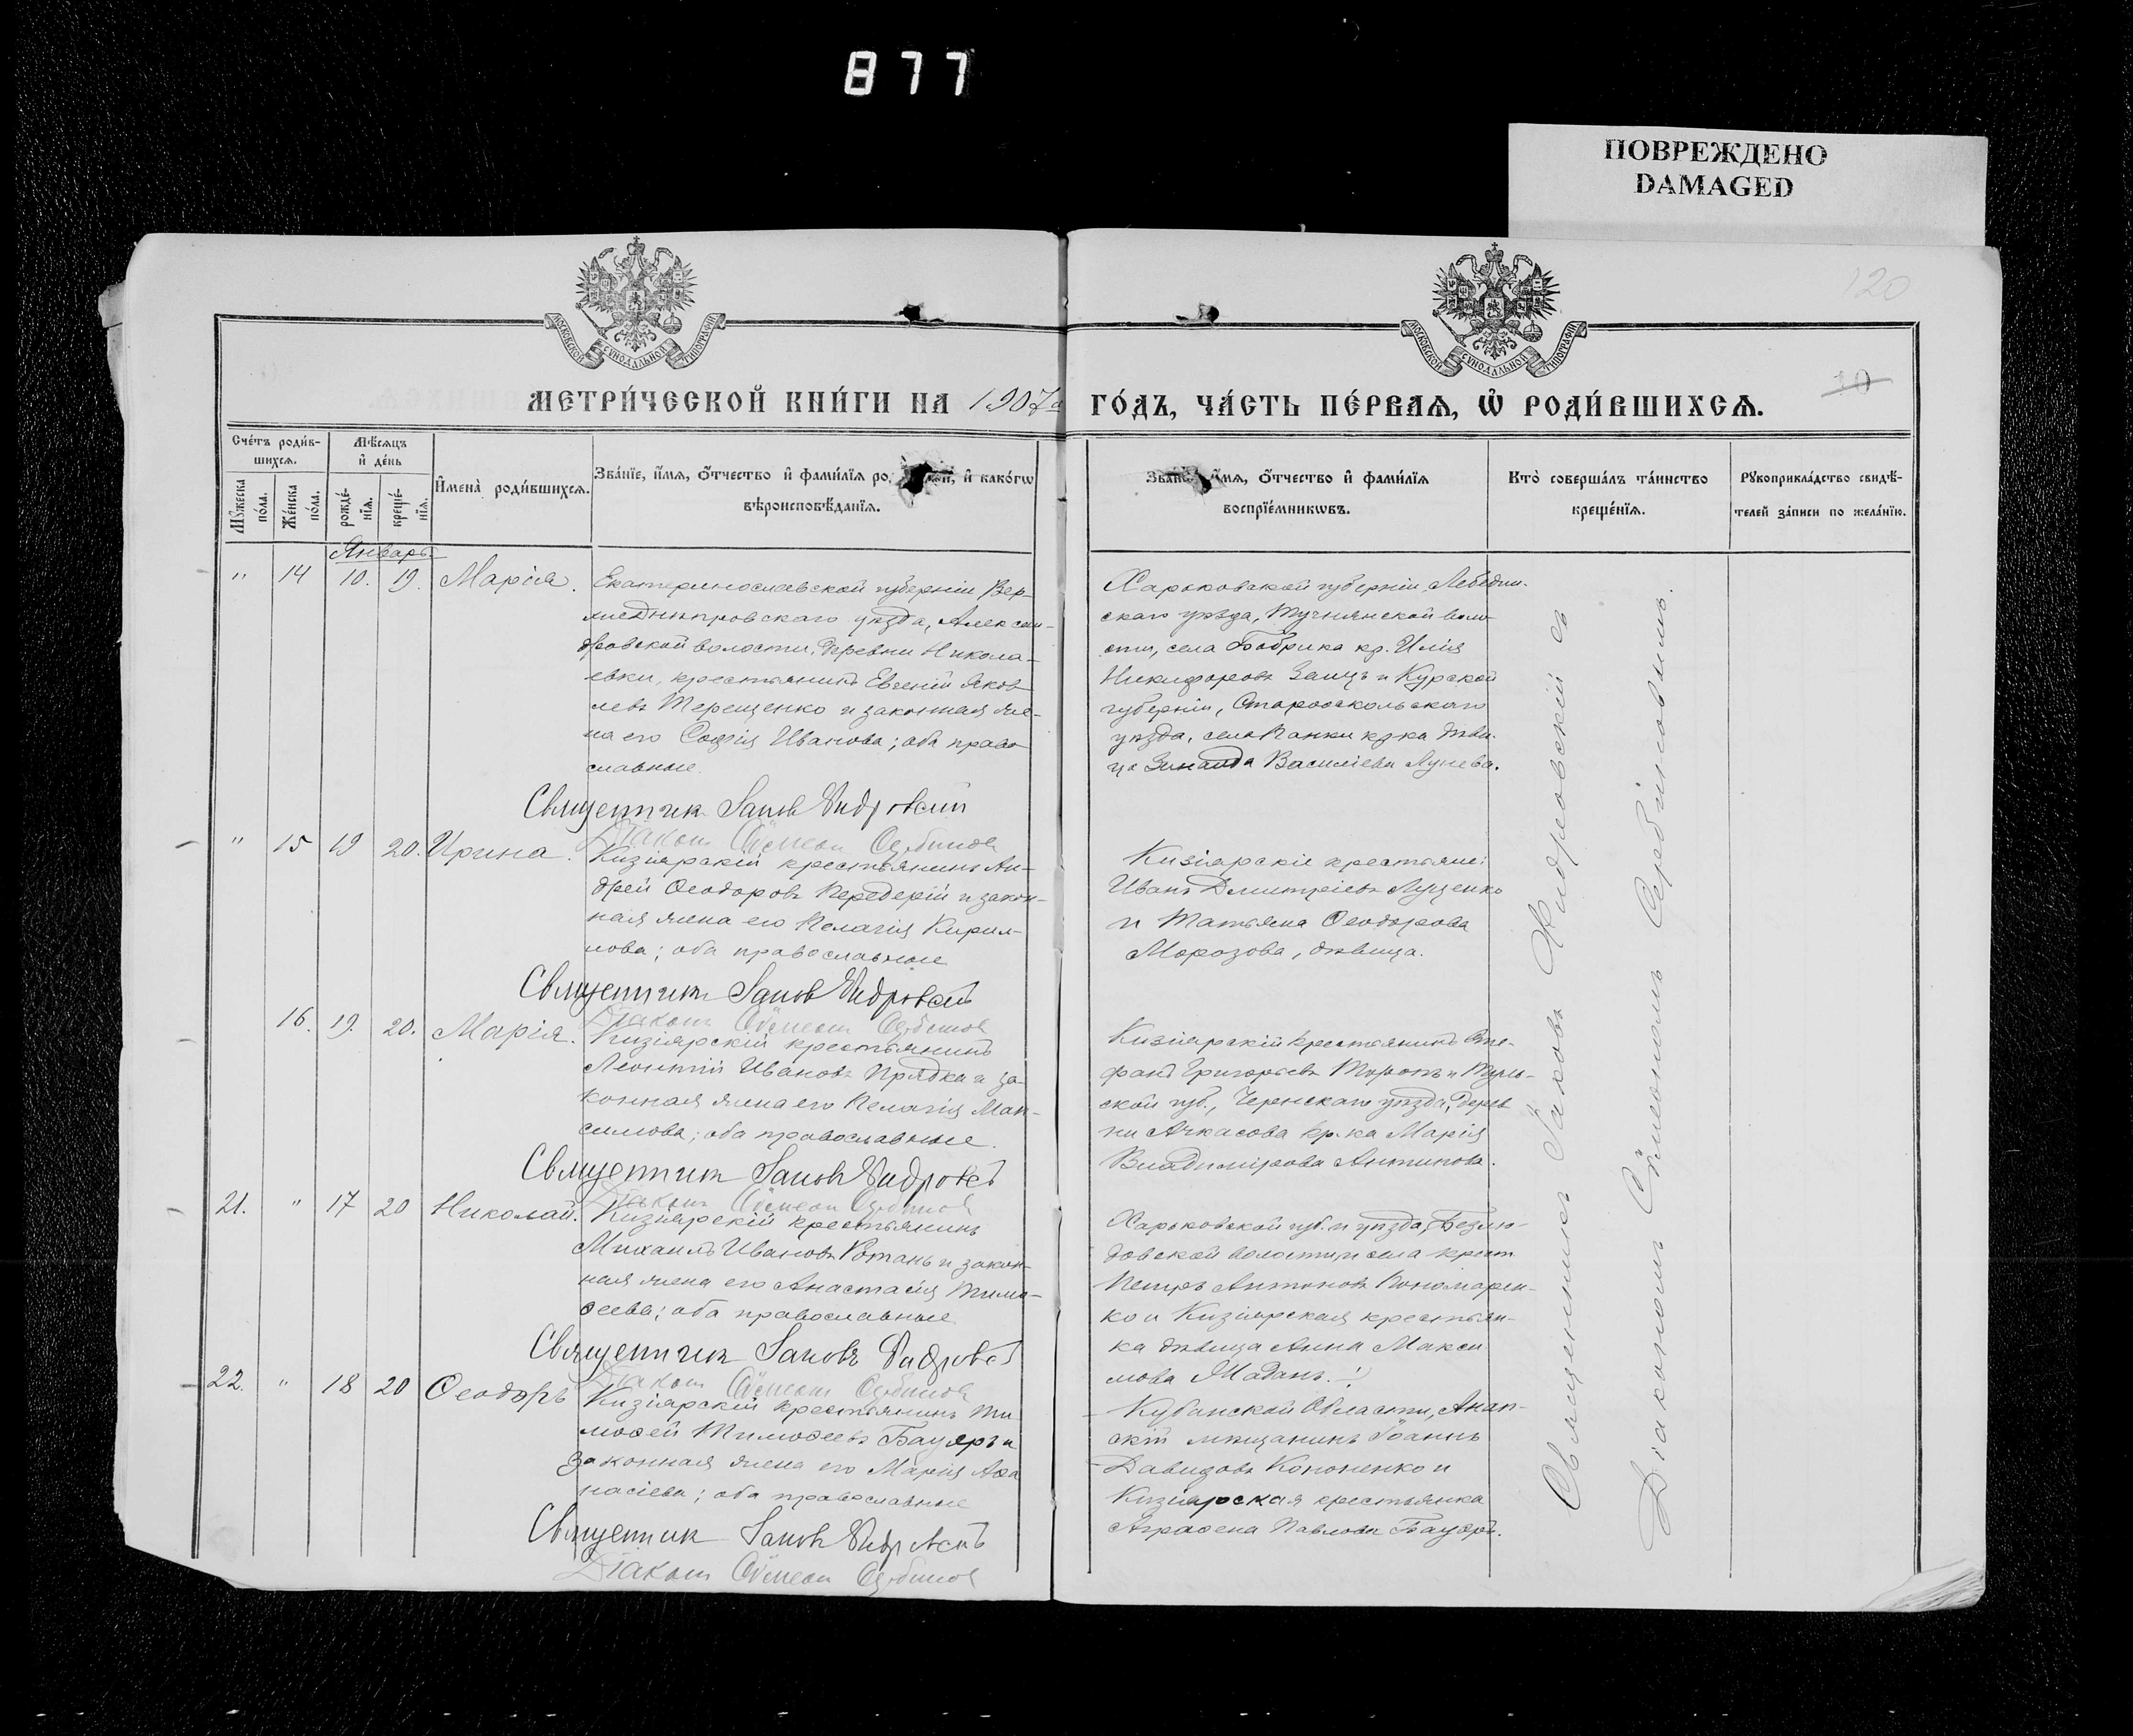 877
ПОВРЕЖДЕНО
DAMAGED
120
МОСКОВСКОЙ СѴНОДАЛЬНОЙ ТИПОГРАФІИ
МОСКОВСКОЙ СѴНОДАЛЬНОЙ ТИПОГРАФІИ
10
МЕТРИ́ЧЕСКОЙ КНИ́ГИ НА 1907 го
ГО́ДЪ, ЧА́СТЬ ПЕ́РВАѦ, Ѡ҆ РОДИ́ВШИХСѦ.
Сче́тъ роди́в-
шихсѧ.
Мѣ́сѧцъ
и҆ де́нь
И҆мена̀ роди́вшихсѧ.
Зва́нїе, и҆́мѧ, ѻ҆́тчество и҆ фами́лїѧ ро й, и҆ како́гѡ
вѣроисповѣ́данїѧ.
Мꙋ́жеска
по́ла.
Же́нска
по́ла.
рожде́-
нїѧ.
креще́-
нїѧ.
Зва́н и҆́мѧ, ѻ҆́тчество и҆ фами́лїѧ
воспрїе́мникѡвъ.
Кто̀ соверша́лъ та́инство
креще́нїѧ.
Рꙋкоприкла́дство свидѣ́-
телей за́писи по жела́нїю.
Январь
" 14 10. 19. Марія.
Екатеринославской губерніи Вер-
хнеднѣпровскаго уѣзда, Алексан-
дровской волости, деревни Никола-
евки, крестьянинъ Евгеній Яков-
левъ Терещенко и законная же-
на его Софія Иванова; оба право-
славные.
Священникъ Іаковъ
Діаконъ Сѷмеонъ
Харьковской губерніи, Лебедин-
скаго уѣзда, Тучнянской воло-
сти, села Бобрика кр. Илія
Никифоровъ Заецъ и Курской
губерніи, Старооскольскаго
уѣзда, села Панки кр-ка дѣви-
ца Зинаида Васильева Лунева.
" 15 19 20. Ирина.
Кизіярскій крестьянинъ Ан-
дрей Ѳеодоровъ Передерій и закон-
ная жена его Пелагія Кирил-
лова; оба православные
Священникъ Іаковъ
Діаконъ Сѷмеонъ
Кизіярскіе крестьяне:
Иванъ Димитріевъ Луценко
и Татьяна Ѳеодорова
Морозова, дѣвица.
16. 19. 20. Марія.
Кизіярскій крестьянинъ
Леонтій Ивановъ Прядка и за-
конная жена его Пелагія Мак-
симова; оба православные.
Священникъ Іаковъ
Діаконъ Сѷмеонъ
Кизіярскій крестьянинъ Сте-
фанъ Григорьевъ и Туль-
ской губ., Чернскаго уѣзда, дерев-
ни Ачкасова кр-ка Марія
Владимірова Антипова.
21. " 17 20 Николай.
Кизіярскій крестьянинъ
Михаилъ Ивановъ Ротань и закон-
ная жена его Анастасія Тимо-
ѳеева; оба православные
Священникъ Іаковъ
Діаконъ Сѷмеонъ
Харьковской губ. и уѣзда, Безлю-
довской волости, и села крест.
Петръ Антоновъ Пономарен-
ко и Кизіярская крестьян-
ка дѣвица Анна Макси-
мова
22. " 18 20 Ѳеодоръ
Кизіярскій крестьянинъ Ти-
моѳей Тимоѳеевъ Бауръ и
законная жена его Марія Аѳа-
насіева; оба православные
Священникъ Іаковъ
Діаконъ Сѷмеонъ
Кубанской Области, Анап-
скій мѣщанинъ Іоаннъ
Давидовъ Кононенко и
Кизіярская крестьянка
Аграфена Павлова
Священникъ Іаковъ съ
Діакономъ Сѷмеономъ